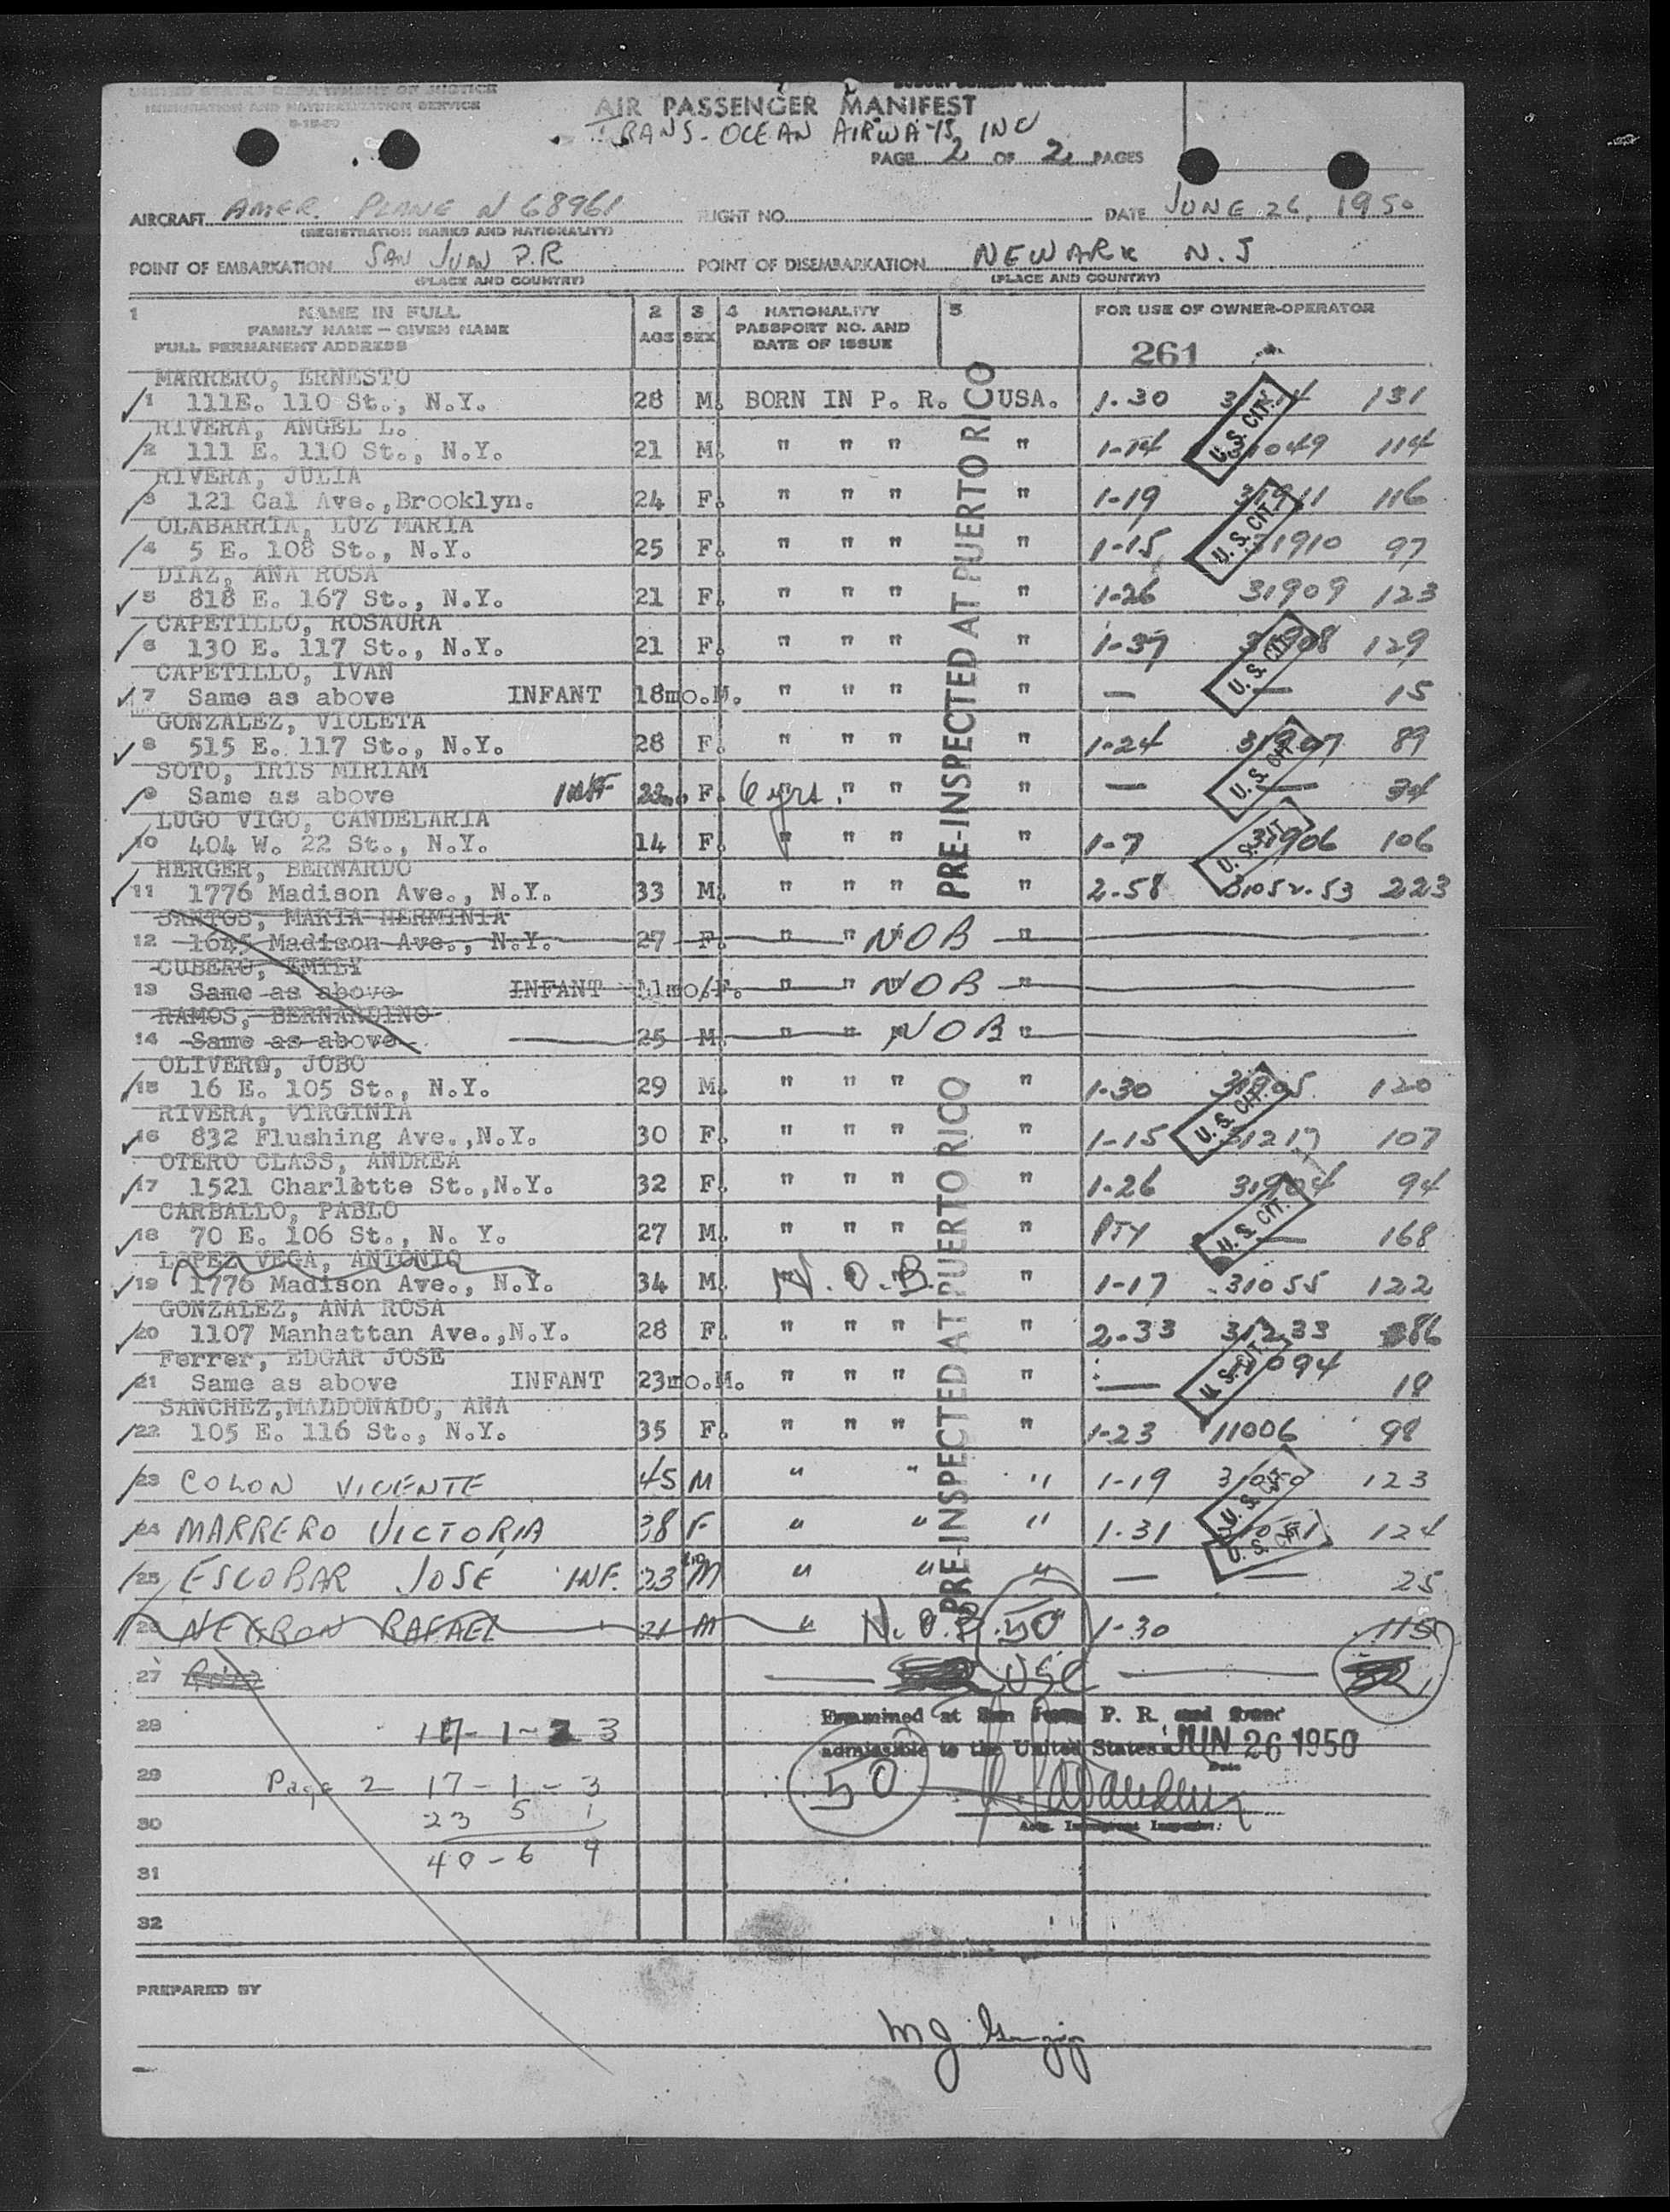 UNITED STATES DEPARTMENT OF JUSTICE
IMMIGRATION AND NATURALIZATION SERVICE
AIR PASSENGER MANIFEST
TRANS-OCEAN AIRWAYS, INC
PAGE 2 OF 2 PAGES
AIRCRAFT AMER. PLANE N 68961 FLIGHT NO. DATE JUNE 26, 1950
(REGISTRATION MARKS AND NATIONALITY)
POINT OF EMBARKATION SAN JUAN P.R POINT OF DISEMBARKATION NEWARK N.J
(PLACE AND COUNTRY) (PLACE AND COUNTRY)
1 NAME IN FULL 2 3 4 NATIONALITY 5 FOR USE OF OWNER-OPERATOR
FAMILY NAME — GIVEN NAME AGE SEX PASSPORT NO. AND
FULL PERMANENT ADDRESS DATE OF ISSUE 261
MARRERO, ERNESTO
1 111E. 110 St., N.Y. 28 M. BORN IN P. R. USA. 1-30 131
RIVERA, ANGEL L.
2 111 E. 110 St., N.Y. 21 M. " " " " 1-14 31049 114
RIVERA, JULIA
3 121 Cal Ave.,Brooklyn. 24 F. " " " " 1-19 31911 116
OLABARRIA, LUZ MARIA
4 5 E. 108 St., N.Y. 25 F. " " " " 1-15 31910 97
DIAZ, ANA ROSA
5 818 E. 167 St., N.Y. 21 F. " " " " 1-26 31909 123
CAPETILLO, ROSAURA
6 130 E. 117 St., N.Y. 21 F. " " " " 1-37 31908 129
CAPETILLO, IVAN
7 Same as above INFANT 18mo.M. " " " " — — 15
GONZALEZ, VIOLETA
8 515 E. 117 St., N.Y. 28 F. " " " " 1-24 31907 89
SOTO, IRIS MIRIAM
9 Same as above INF 23mo F. 6 yrs. " " " — — 34
LUGO VIGO, CANDELARIA
10 404 W. 22 St., N.Y. 14 F. " " " " 1-7 31906 106
HERGER, BERNARDO
11 1776 Madison Ave., N.Y. 33 M. " " " " 2-58 31052-53 223
SANTOS, MARIA HERMINIA
12 1645 Madison Ave., N.Y. 27 F. " " NOB "
CUBERO, EMILY
13 Same as above INFANT 11mo/F. " " NOB "
RAMOS, BERNARDINO
14 Same as above 25 M " " NOB "
OLIVERO, JOBO
15 16 E. 105 St., N.Y. 29 M. " " " " 1-30 31905 120
RIVERA, VIRGINIA
16 832 Flushing Ave.,N.Y. 30 F. " " " " 1-15 31217 107
OTERO CLASS, ANDREA
17 1521 Charlotte St.,N.Y. 32 F. " " " " 1-26 31904 94
CARBALLO, PABLO
18 70 E. 106 St., N. Y. 27 M. " " " " PTY — 168
LOPEZ VEGA, ANTONIO
19 1776 Madison Ave., N.Y. 34 M. N.O.B. " 1-17 31055 122
GONZALEZ, ANA ROSA
20 1107 Manhattan Ave.,N.Y. 28 F. " " " " 2-33 31233 86
Ferrer, EDGAR JOSE
21 Same as above INFANT 23mo.M. " " " " — 19
SANCHEZ,MALDONADO, ANA
22 105 E. 116 St., N.Y. 35 F. " " " " 1-23 11006 98
23 COLON VICENTE 45 M " " " 1-19 31050 123
24 MARRERO VICTORIA 38 F " " " 1-31 31051 124
25 ESCOBAR JOSÉ INF. 23 mo M " " " — — 25
26 NEGRON RAFAEL 21 M " N.O.B. 50 1-30 115
27 USC
28 17-1-3
29 Page 2 17-1-3
30 23 5 1
31 40-6 4
32
PRE-INSPECTED AT PUERTO RICO
PRE-INSPECTED AT PUERTO RICO
U.S. CIT.
U.S. CIT.
U.S. CIT.
U.S. CIT.
U.S. CIT.
U.S. CIT.
U.S. CIT.
U.S. CIT.
U.S. CIT.
U.S. CIT.
Examined at San Juan P. R. and found
admissible to the United States. JUN 26 1950
Date
50
Actg. Immigrant Inspector.
PREPARED BY